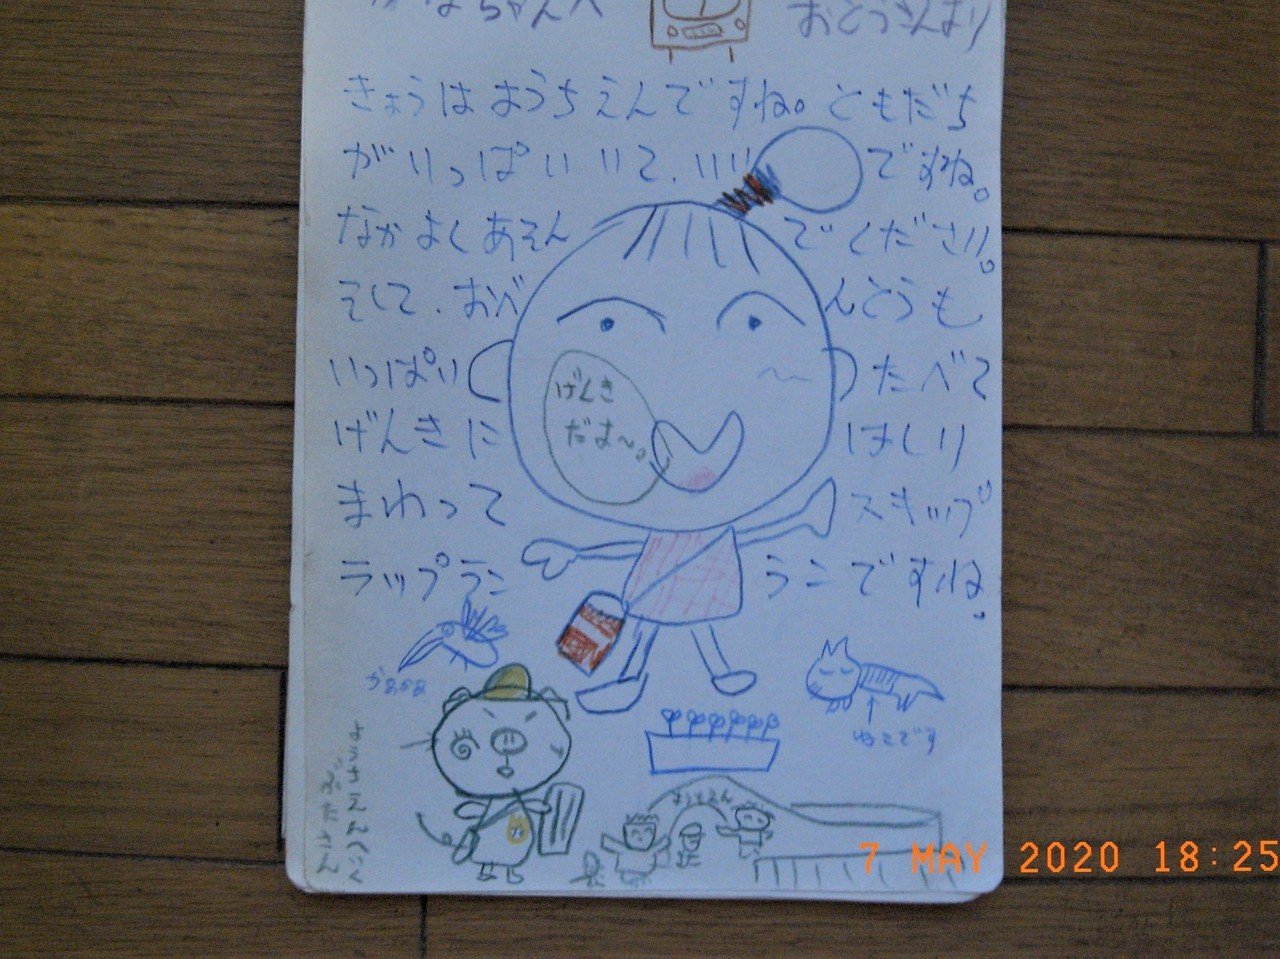 ちゃんへ
おとうさんより
きょうはようちえんですね。ともだち
がいっぱいいて、いいですね。
なかよくあそんでください。
そして、おべんとうも
いっぱいたべて
げんきにはしり
まわってスキップ
ラップランランうこですね。
げんき
だよ〜。
ねこです
ようちえん
7 MAY 2020 18:25